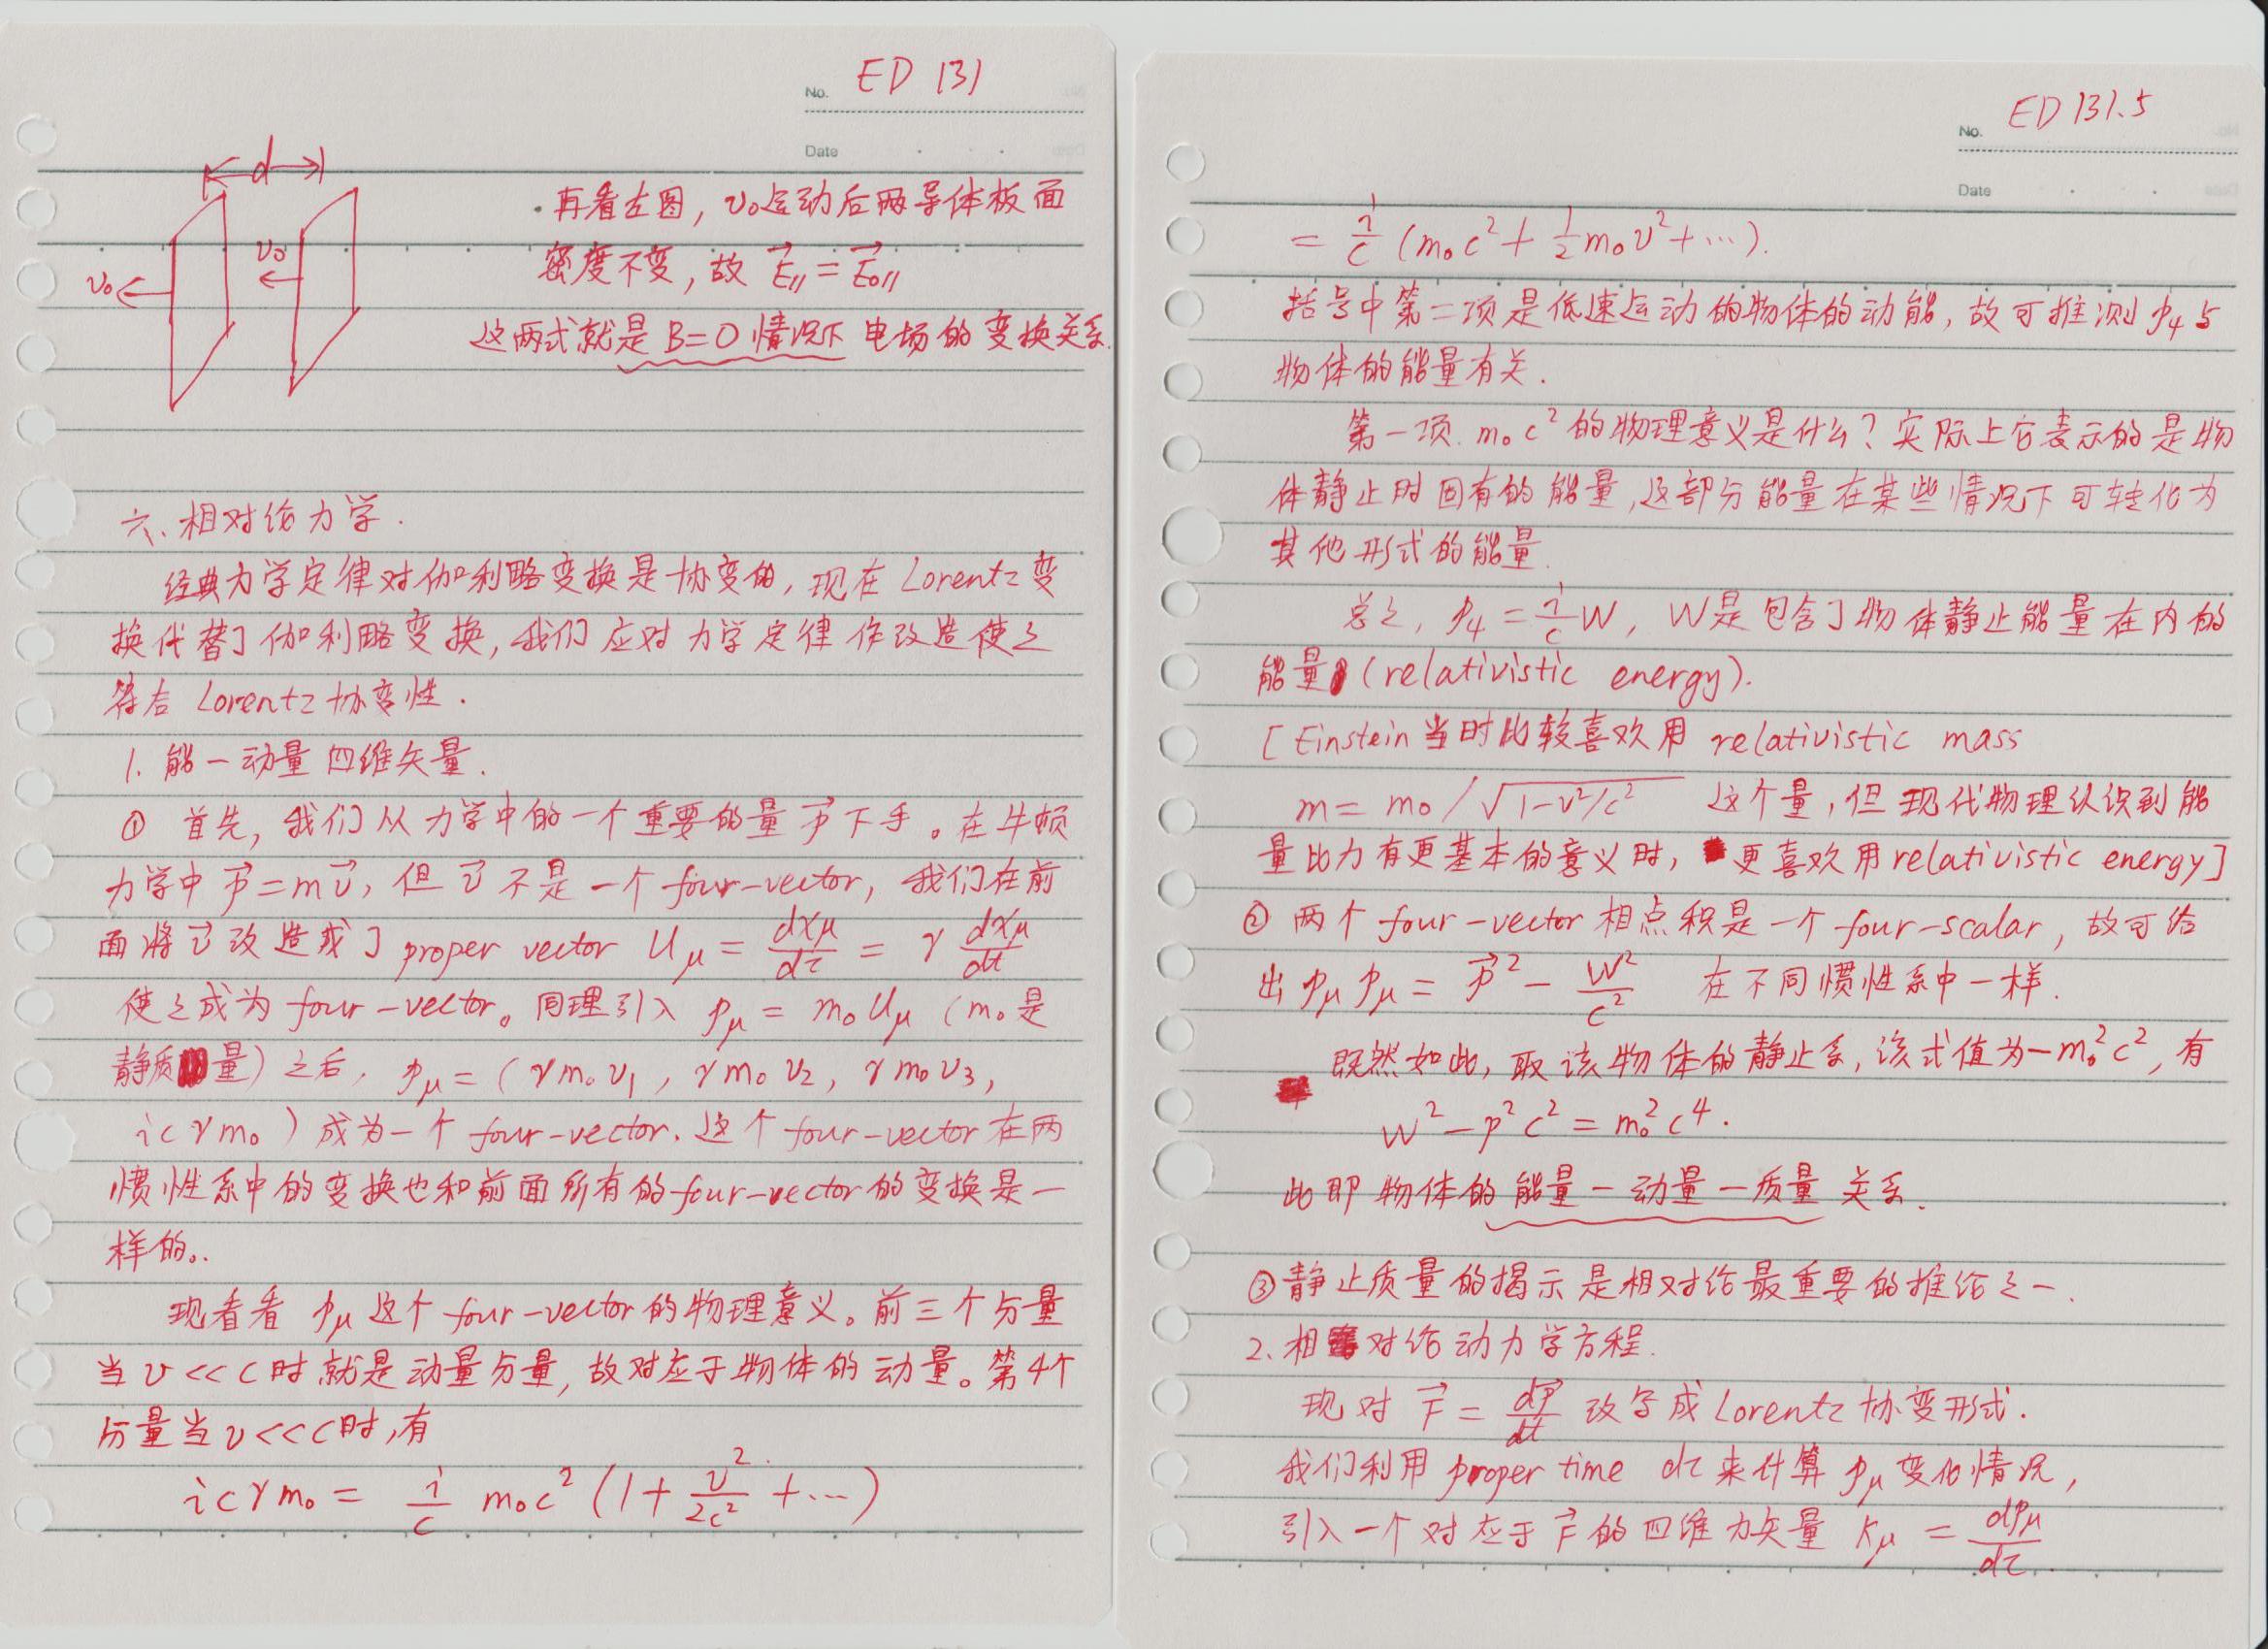 No. ED 131
Date
d
v₀
v₀
· 再看左图, v₀运动后两导体板面
密度不变, 故 E⃗∥ = E⃗₀∥
这两式就是 B=0 情况下 电场的变换关系.
六、相对论力学.
经典力学定律对伽利略变换是协变的, 现在 Lorentz 变
换代替了伽利略变换, 我们应对力学定律作改造使之
符合 Lorentz 协变性.
1. 能—动量四维矢量.
① 首先, 我们从力学中的一个重要的量 p⃗ 下手。在牛顿
力学中 p⃗ = mv⃗, 但 v⃗ 不是一个 four-vector, 我们在前
面将 v⃗ 改造成了 proper vector Uμ = dxμ/dτ = γ dxμ/dt
使之成为 four-vector。同理引入 pμ = m₀Uμ (m₀是
静质量) 之后, pμ = (γm₀v₁, γm₀v₂, γm₀v₃,
icγm₀) 成为一个 four-vector. 这个 four-vector 在两
惯性系中的变换也和前面所有的 four-vector 的变换是一
样的。.
现看看 pμ 这个 four-vector 的物理意义。前三个分量
当 v<<c 时就是动量分量, 故对应于物体的动量。第4个
分量当 v<<c时, 有
icγm₀ = i/c m₀c² (1 + v²/2c² + ···)
No. ED 131.5
Date
= i/c (m₀c² + 1/2 m₀v² + ···).
括号中第二项是低速运动的物体的动能, 故可推测 p₄ 与
物体的能量有关.
第一项. m₀c² 的物理意义是什么? 实际上它表示的是物
体静止时固有的能量, 这部分能量在某些情况下可转化为
其他形式的能量.
总之, p₄ = i/c W, W是包含了物体静止能量在内的
能量 (relativistic energy).
[Einstein 当时比较喜欢用 relativistic mass
m = m₀ / √(1-v²/c²) 这个量, 但现代物理认识到能
量比力有更基本的意义时, 更喜欢用 relativistic energy]
② 两个 four-vector 相点积是一个 four-scalar, 故可给
出 pμpμ = p⃗² - W²/c² 在不同惯性系中一样.
既然如此, 取该物体的静止系, 该式值为 -m₀²c², 有
W² - p²c² = m₀²c⁴.
此即物体的能量—动量—质量关系.
③ 静止质量的揭示是相对论最重要的推论之一.
2. 相对论动力学方程.
现对 F⃗ = dp⃗/dt 改写成 Lorentz 协变形式.
我们利用 proper time dτ 来计算 pμ 变化情况,
引入一个对应于 F⃗ 的四维力矢量 Kμ = dpμ/dτ.